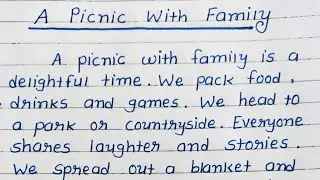 A Picnic With Family
A picnic with family is a
delightful time. We pack food,
drinks and games. We head to
a park or countryside. Everyone
shares laughter and stories.
We spread out a blanket and